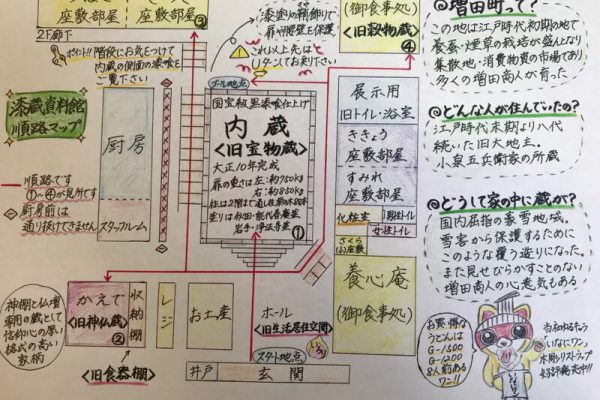 座敷部屋
③
座敷部屋
2F廊下
ポイント!!階段にお気をつけて
内蔵の側面の漆喰を
ご覧下さい
漆塗りの鞘飾りで
扉や外壁を保護
これ以上先は
Uターンしてお戻り下さい
(御食事処)
<旧穀物蔵>
④
漆蔵資料館
順路マップ
順路です
①~④が見所です
厨房前は
通り抜けできません
厨房
スタッフルーム
ゴール地点
国宝級黒漆喰仕上げ
内蔵
<旧宝物蔵>
大正10年完成
扉の重さは左:約750kg
右:約850kg
柱は2階まで通し
塗りは秋田・能代春慶塗
岩手・浄法寺塗
①
展示用
旧トイレ・浴室
ききょう
座敷部屋
すみれ
座敷部屋
化粧室
男性トイレ
女性トイレ
さくら
(小)座敷
養心庵
(御食事処)
かえで
<旧神仏蔵>
②
収納棚
<旧食器棚>
レジ
お土産
ホール
<旧生活居住空間>
スタート地点
井戸
玄関
神棚と仏壇
専用の蔵として
信仰心の厚い
格式の高い
家柄
@増田町って?
この地は江戸時代初期の地で
養蚕・煙草の栽培が盛んとなり
集散地・消費物資の市場であり
多くの増田商人が育った
@どんな人が住んでいたの?
江戸時代末期より八代
続いた旧大地主。
小泉五兵衛家の所蔵
@どうして家の中に蔵が?
国内屈指の豪雪地域。
雪害から保護するために
このような覆う造りになった。
また見せびらかすことのない
増田商人の心意気もある
お買い得な
うどんは
G-1500
G-1200
8人前ある
ワン!!
いなにワン
木彫りストラップ
好評発売中!!